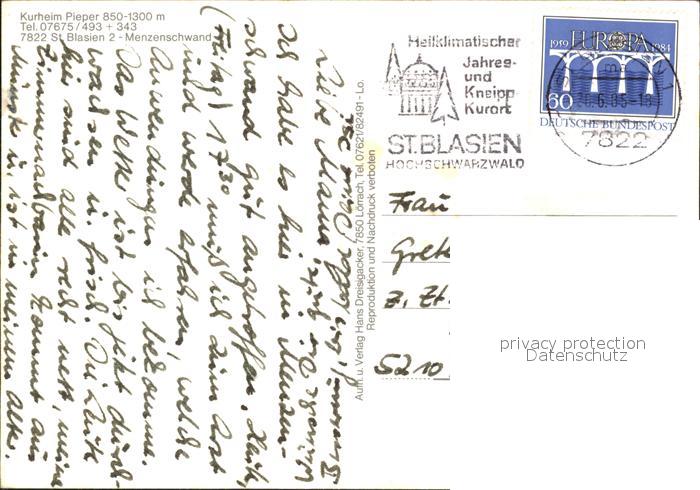 Kurheim Pieper 850-1300 m
Tel. 07675 / 493 + 343
7822 St. Blasien 2 - Menzenschwand
Liebe Mama,
Ich habe es hier in Menzen-
schwand gut angetroffen. Heute,
(Freitag) 17³⁰ muß ich zum Arzt
und werde erfahren, welche
Anwendungen ich bekomme.
Das Wetter ist bis jetzt durch-
wachsen u. frisch. Die Leute
hier sind alle recht nett, meine
Zimmernachbarin kommt aus
u. ist in meinem Alter.
Aufn. u. Verlag Hans Dreisigacker, 7850 Lörrach, Tel. 07621/82491 - Lo.
Reproduktion und Nachdruck verboten
Heilklimatischer
Jahres-
und
Kneipp-
Kurort
ST.BLASIEN
HOCHSCHWARZWALD
1959 EUROPA 1984
60
DEUTSCHE BUNDESPOST
7822
Frau
z. Zt.
5210
privacy protection
Datenschutz